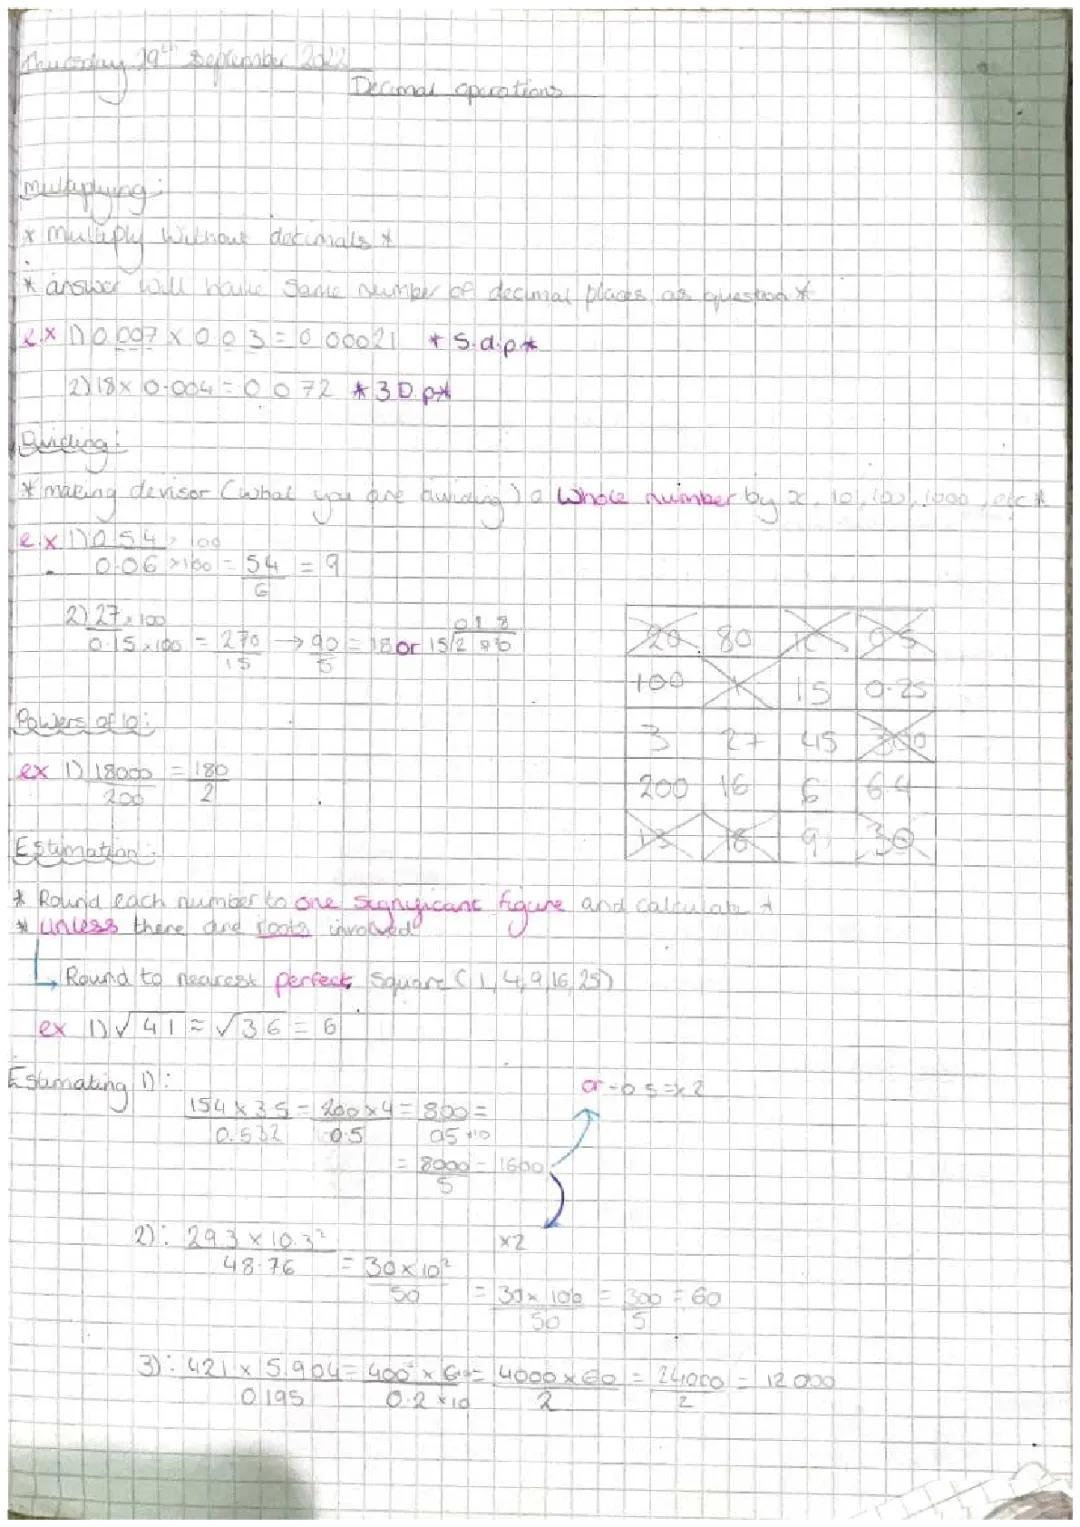 Thursday 29th September 2022
Decimal operations
multiplying:
* multiply without decimals *
* answer will have same number of decimal places as question *
e.x 1) 0.007 × 0.03 = 0.00021 * 5.d.p *
2) 18 × 0.004 = 0.072 * 3 D.p *
Dividing:
* making devisor (what you are dividing) a whole number by x, 10, 100, 1000, etc *
e.x 1) 0.54 × 100
0.06 × 100 = 54 = 9
6
2) 27 × 100
0.15 × 100 = 270 → 90 = 18 or 15
15 5
20 80 0.5
100 1 15 0.25
3 27 45 300
200 16 6 6.4
13 18 9 30
Powers of 10:
ex 1) 18000 = 180
200 2
Estimation:
* Round each number to one significant figure and calculate *
* unless there are roots involved
Round to nearest perfect square (1, 4, 9, 16, 25)
ex 1) √41 ≈ √36 = 6
Estimating 1):
or ÷0.5 = ×2
154 × 3.5 = 200 × 4 = 800 =
0.532 0.5 0.5 ×10
= 8000 = 1600
5
×2
2): 29.3 × 10.3²
48.76 = 30 × 10²
50 = 30 × 100 = 300 = 60
50 5
3): 421 × 5.904 = 400 × 6 = 4000 × 60 = 24000 = 12 000
0.195 0.2 × 10 2 2